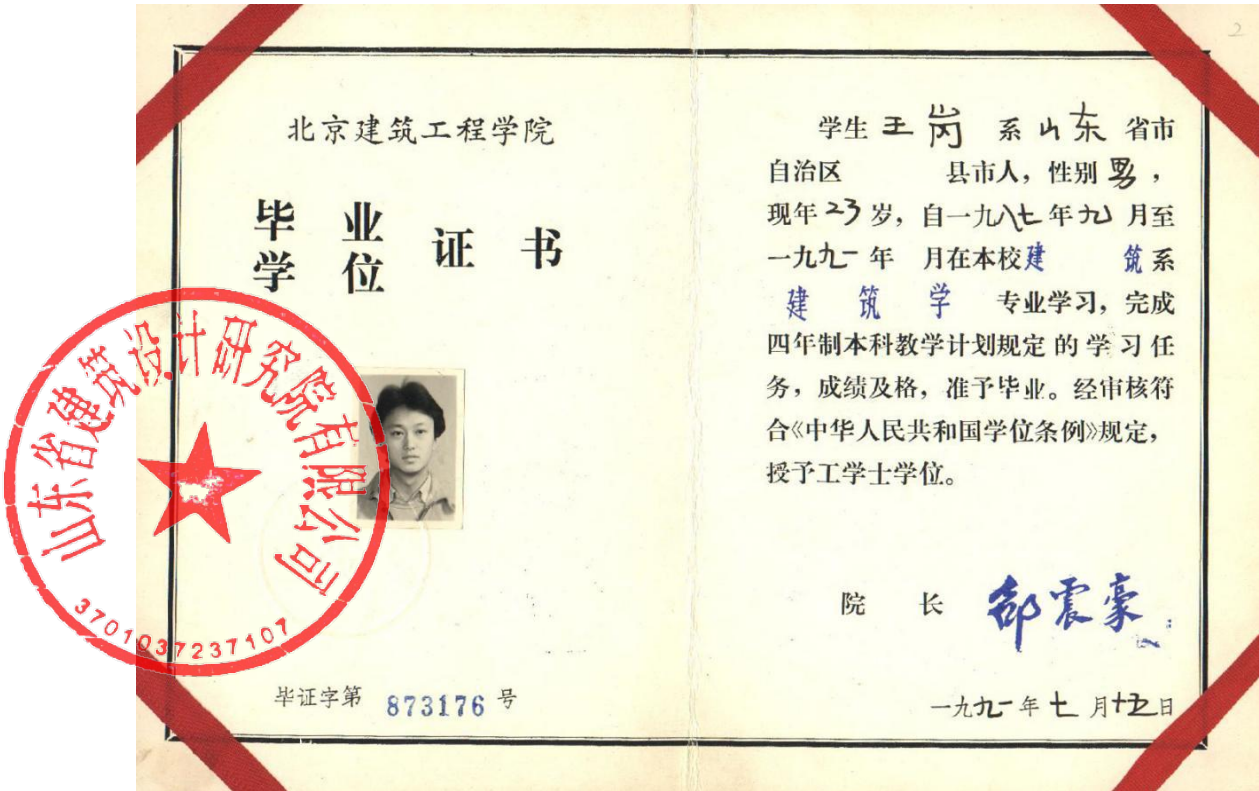 北京建筑工程学院
毕业
学位
证书
山东省建筑设计研究院有限公司
3701037237107
毕证字第 873176 号
2
学生 王岗 系山东 省市
自治区 县市人，性别 男，
现年 23 岁，自一九八七年九月至
一九九一年 月在本校建 筑系
建 筑 学 专业学习，完成
四年制本科教学计划规定的学习任
务，成绩及格，准予毕业。经审核符
合《中华人民共和国学位条例》规定，
授予工学士学位。
院 长 郜震豪
一九九一年七月十五日